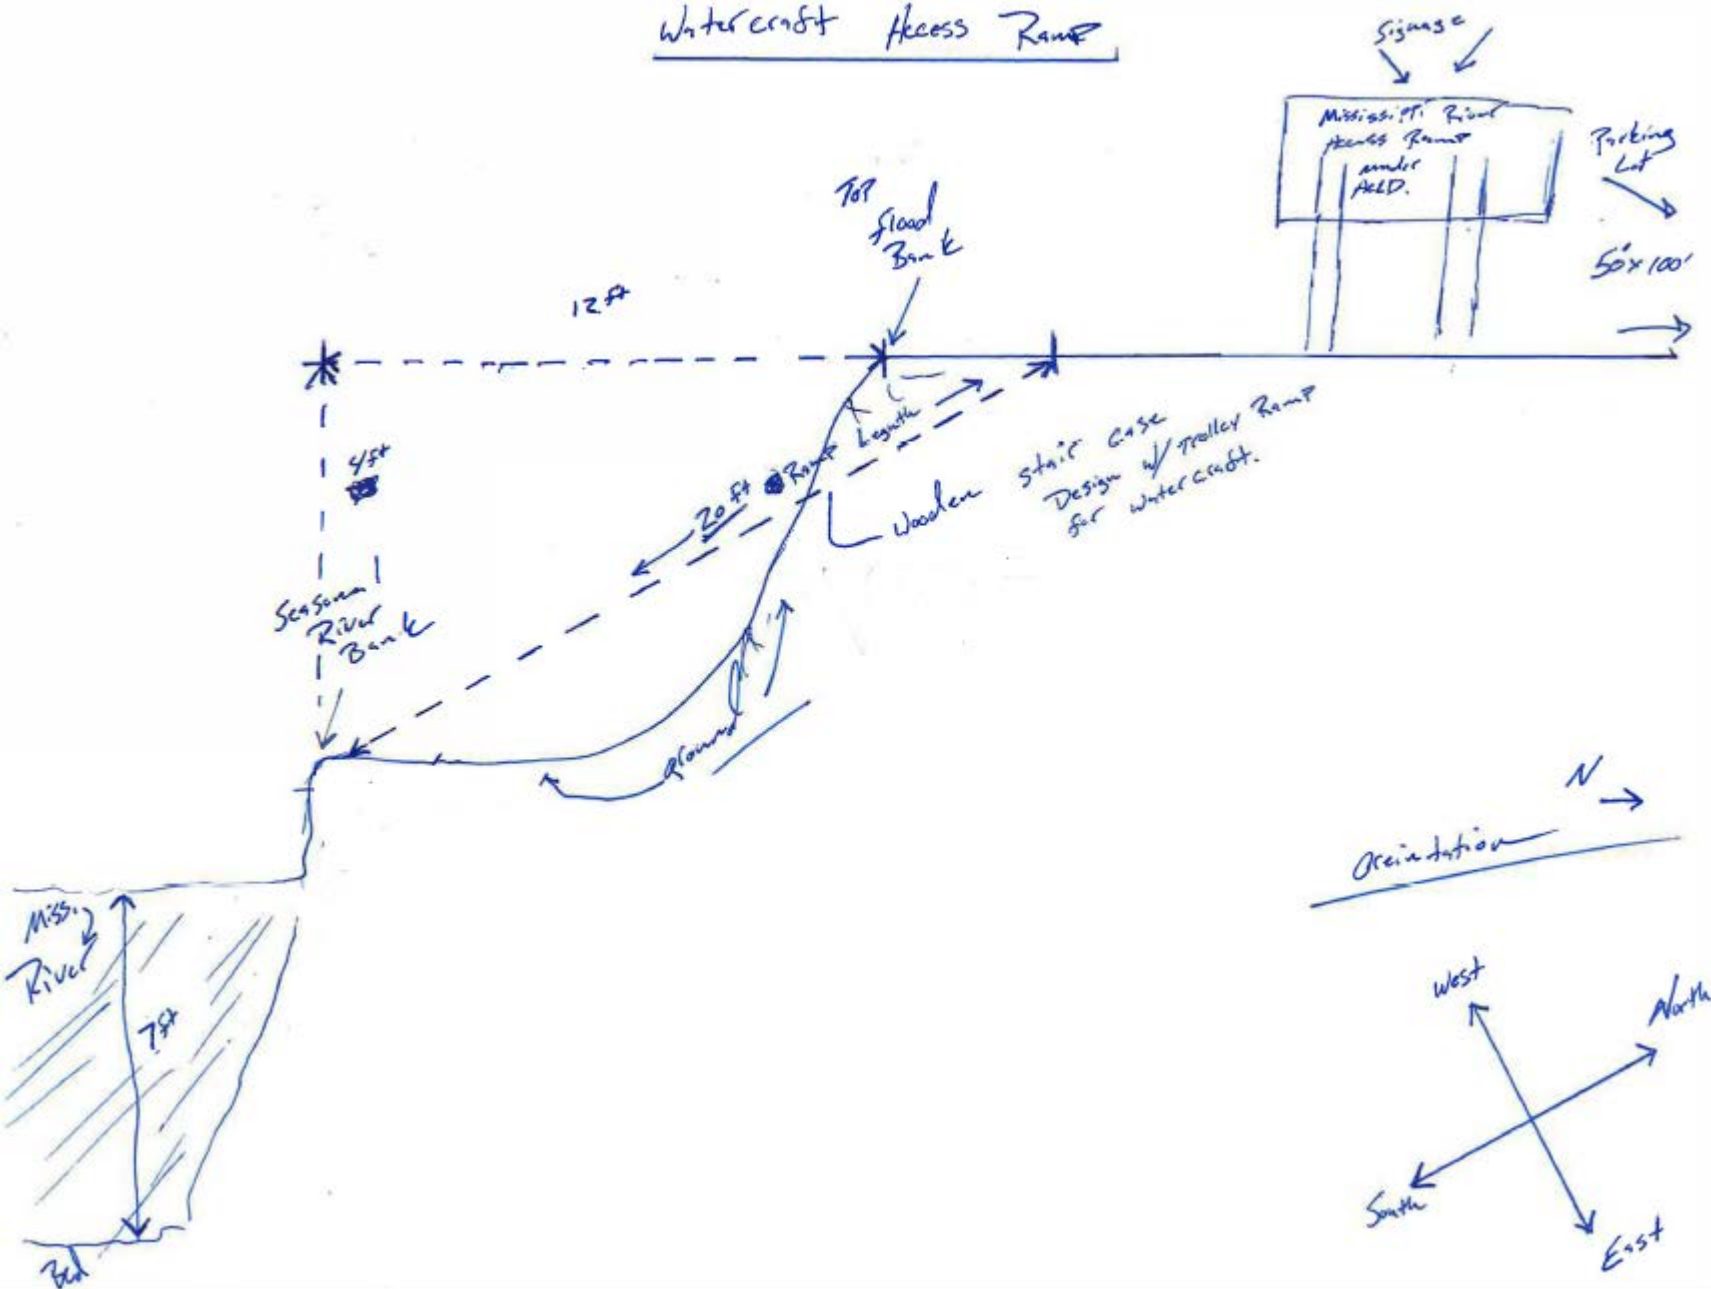 Watercraft Access Ramp
Signage
Mississippi River
Access Ramp
under
Parking
Lot
50' x 100'
Top
flood
Bank
12 ft
4 ft
20 ft Ramp Length
Wooden stair case
Design w/ Trolley Ramp
for watercraft.
Seasonal
River
Bank
ground
N
Oreintation
Miss.
River
7 ft
Bed
West
North
South
East